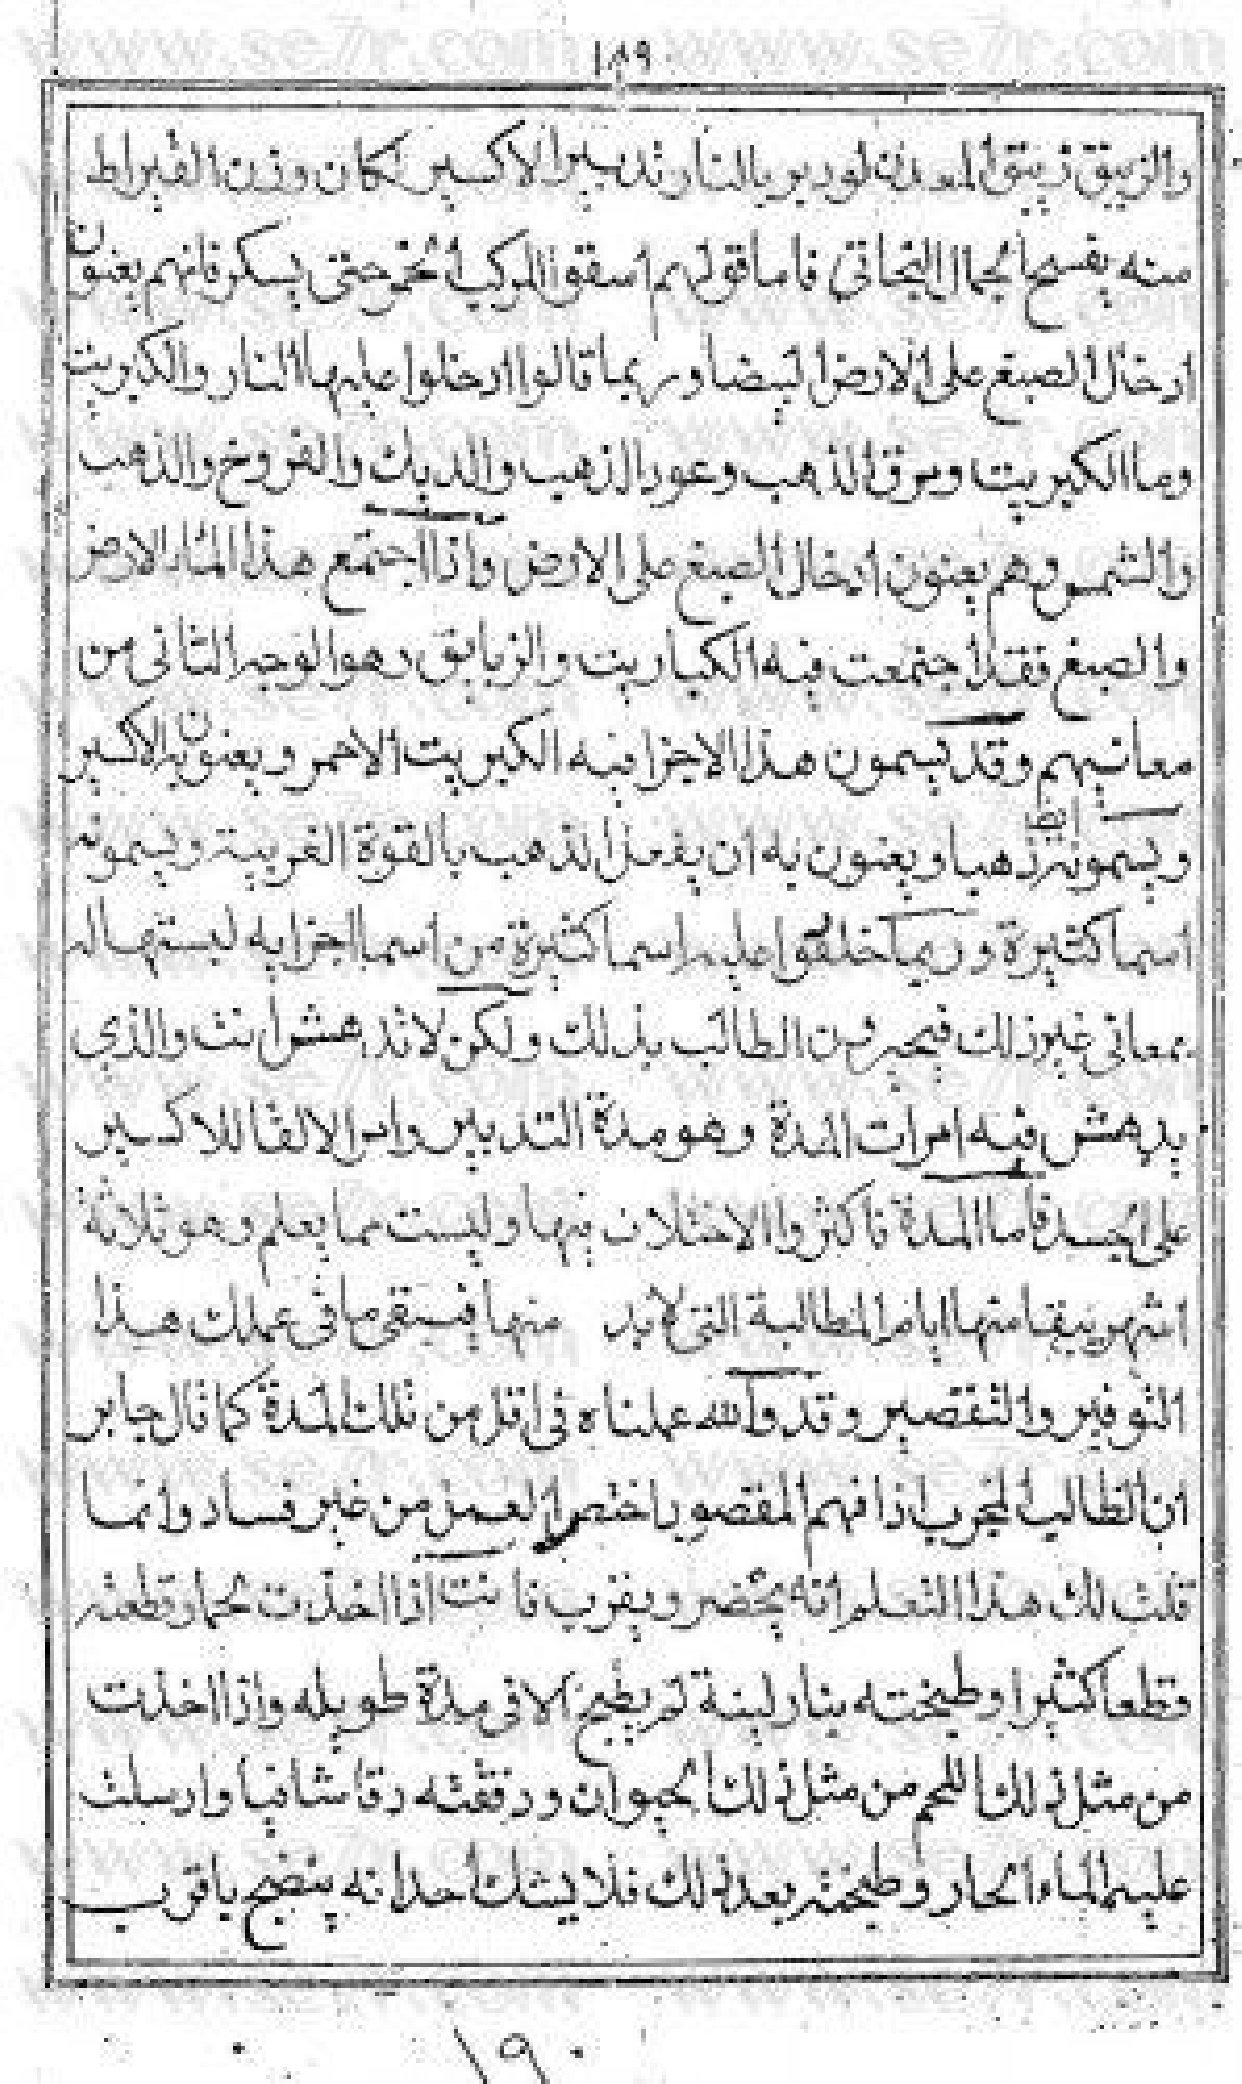 ١٨٩
والزيبق زيبق المعدن لو دبر بالنار تدبير الاكسير لكان وزن القيراط
منه يفسح الجمال البخاتى فاما قولهم اسقوا المركب الخمر حتى يسكر فانهم يعنون
ادخال الصبغ على الارض البيضا وربما قالوا ادخلوا عليها النار والكبريت
وما الكبريت ومرق الذهب وعود الذهب والديك والفروخ والذهب
والشمس وهم يعنون ادخال الصبغ على الارض واذا اجتمع هذا الماء الارض
والصبغ فقد اجتمعت فيه الكباريت والزيابق وهو الوجه الثانى من
معانيهم وقد يسمون هذا الاجزا فيه الكبريت الاحمر ويعنون به الاكسير
ايضا
ويسمونه ذهبا ويعنون به ان يفعل الذهب بالقوة القريبة ويسمونه
اسما كثيرة وربما خلقوا عليه اسما كثيرة من اسما اجزايه ليستها له
بمعانى غير ذلك فيحير ذهن الطالب بذلك ولكن لا تدهش انت والذي
يدهش فيه امرات المدة وهو مدة التدبير وامر الالقا للاكسير
على الجسد فاما المدة فاكثروا الاختلاف فيها وليست مما يعلم وهو ثلاثة
اشهر يبقا منها ايام المطالبة التى لابد منها فيبقى ما فى عملك هذا
التوفير والتقصير وقد والله عملناه فى اقل من تلك المدة كما قال جابر
ان الطالب المجرب اذا فهم المقصود اختصر العمل من غير فساد وانما
قلت لك هذا لتعلم انه يختصر ويقرب فانت اذا اخذت لحما وقطعته
وقطعا كثيرا وطبخته بنار لينة لم يطبخ الا فى مدة طويله واذا اخذت
من مثل ذلك اللحم من مثل ذلك الحيوان ورققته رقا شافيا وارسلت
عليه الماء الحار وطبخته بعد ذلك فلا يشك احد انه ينضج باقرب
١٩٠
www.se7r.com www.se7r.com